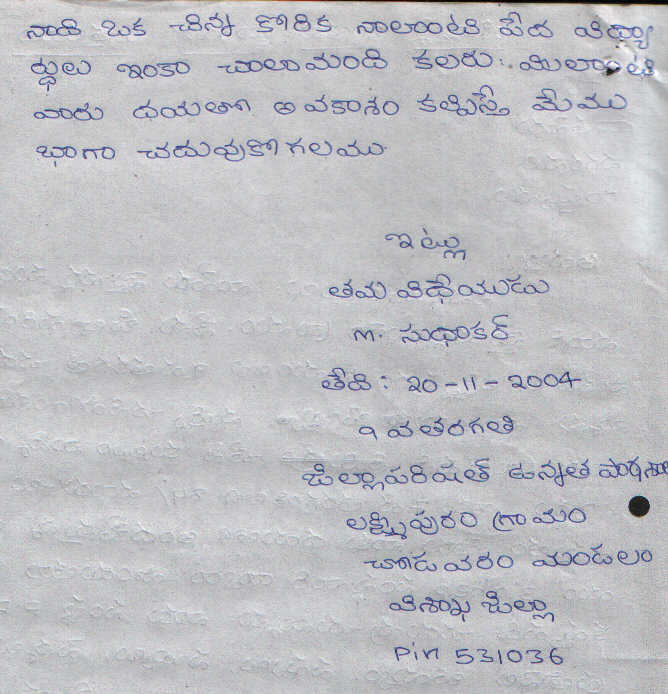 నాది ఒక చిన్న కోరిక నాలాంటి పేద విద్యా
ర్థులు ఇంకా చాలామంది కలరు. మీలాంటి
వారు దయతో అవకాశం కల్పిస్తే మేము
భాగా చదువుకోగలము
ఇట్లు
తమ విధేయుడు
M. సుధాకర్
తేది : 20-11-2004
9 వ తరగతి
జిల్లాపరిషత్ ఉన్నత పాఠశాల
లక్ష్మిపురం గ్రామం
చోడవరం మండలం
విశాఖ జిల్లా
Pin 531036